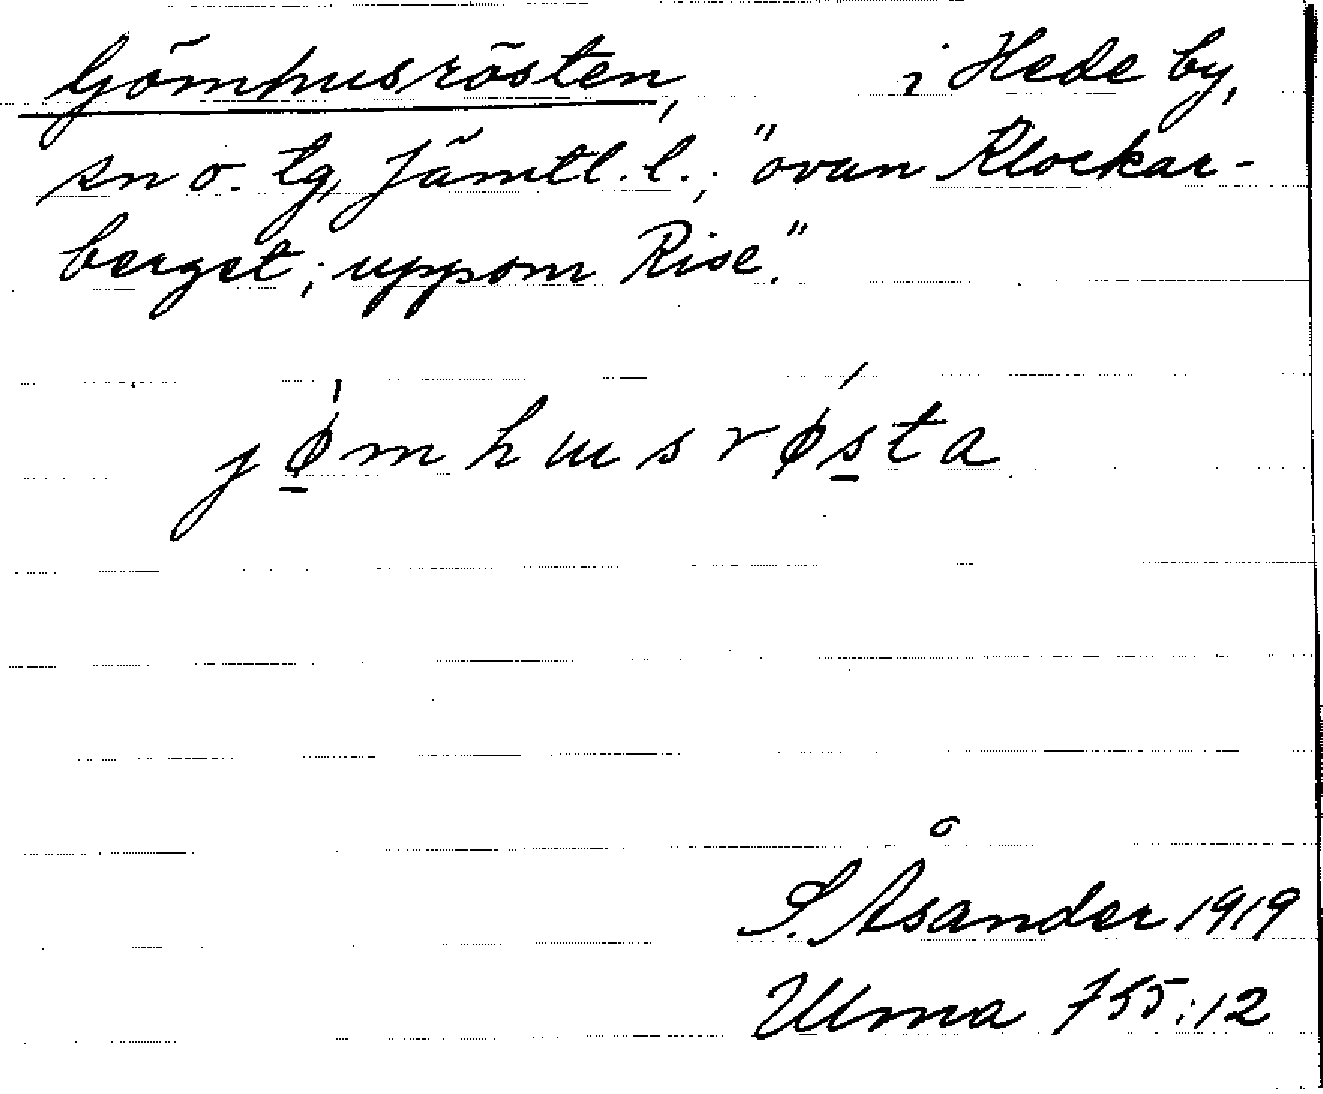 Gömhusrösten, i Hede by,
sn o. tg, Jämtl. l.; "ovan Klockar-
berget; uppom Rise."
jø̱̍mhusrǿs̱ta
S. Åsander 1919
Ulma 755:12